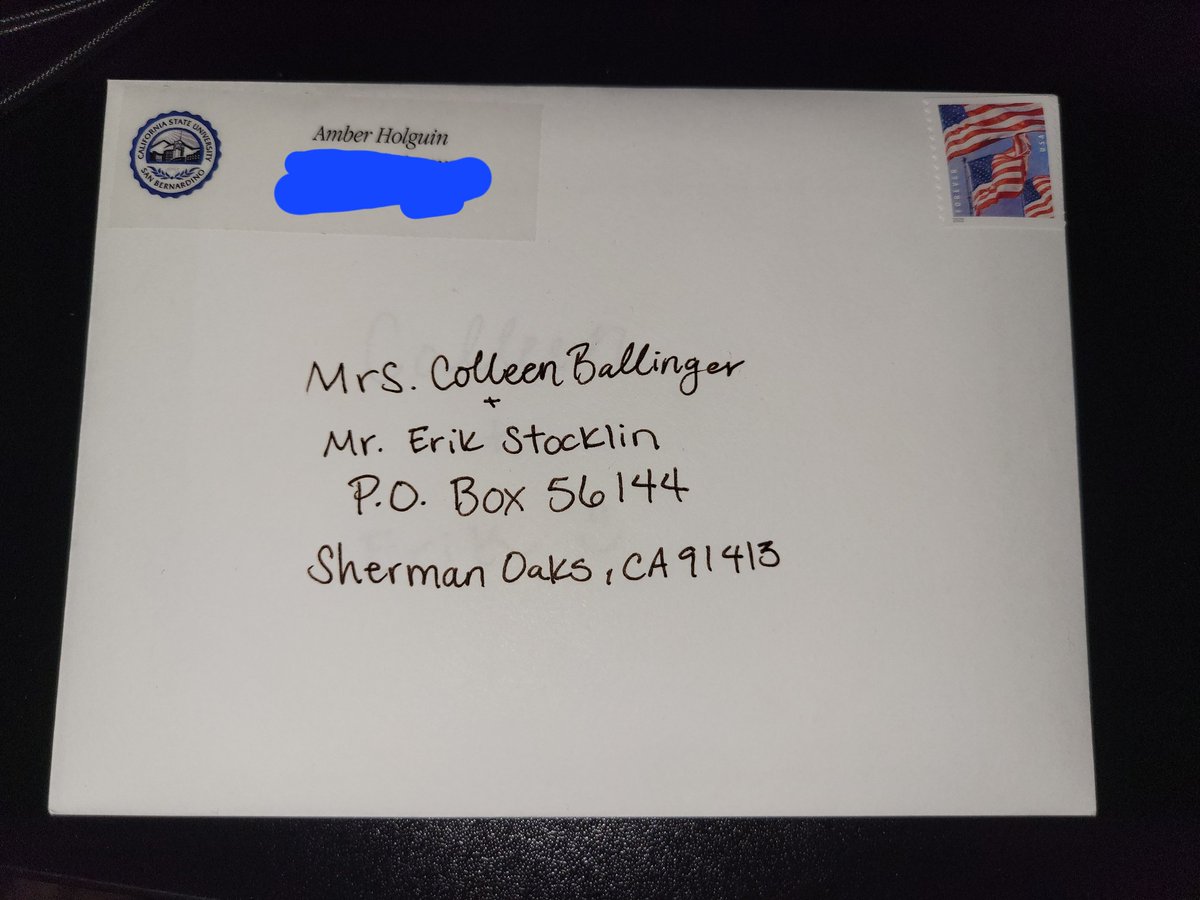 CALIFORNIA STATE UNIVERSITY
SAN BERNARDINO
Amber Holguin
FOREVER
USA
Mrs. Colleen Ballinger
+
Mr. Erik Stocklin
P.O. Box 56144
Sherman Oaks, CA 91413